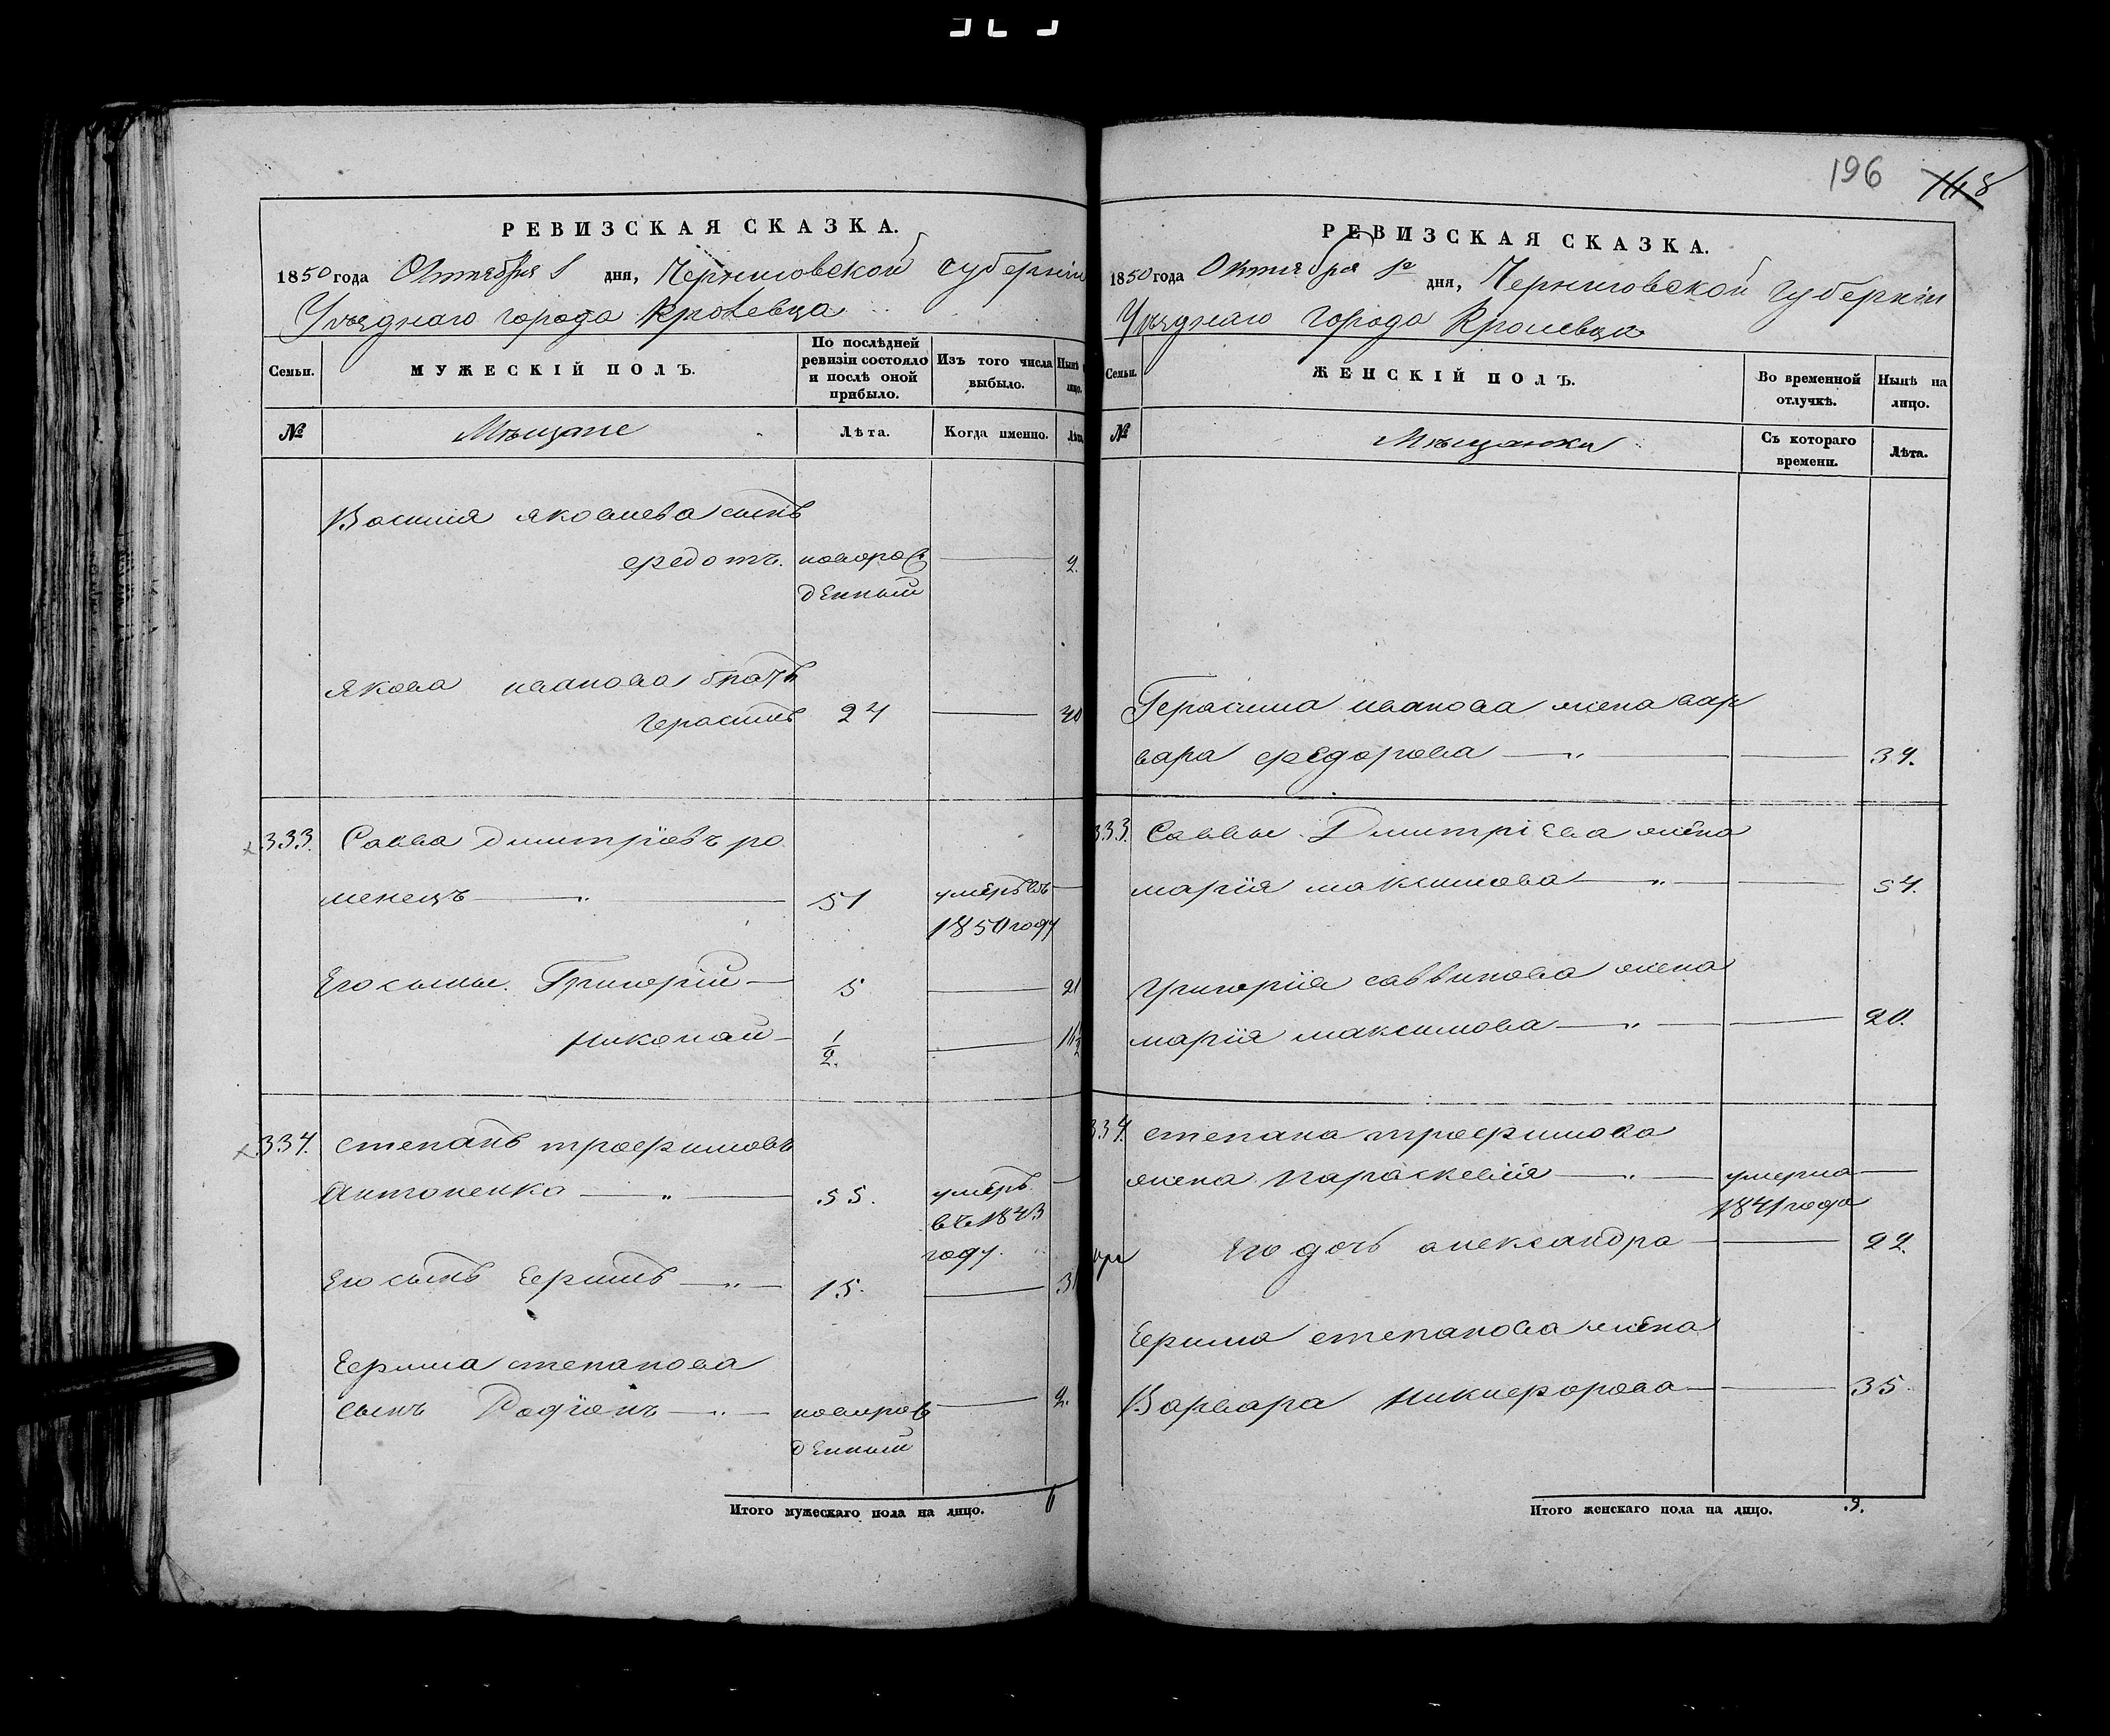 РЕВИЗСКАЯ СКАЗКА.
1850 года Октября 1 дня, Черниговской губерніи
Уѣзднаго города Кролевца
Семьи.
МУЖЕСКІЙ ПОЛЪ.
По послѣдней ревизіи состояло и послѣ оной прибыло.
Изъ того числа выбыло.
Нынѣ
лицо.
№
Мѣщане
Лѣта.
Когда именно.
Лѣта
Василія яковлева сынъ
федотъ. новорож 2.
денный
якова иванова братъ
герасимъ 24 40
333. Савва дмитріевъ ро
менецъ 51 умеръ въ
1850 году
Его сыны. Григорій 5 21
николай 1/2. 16 1/2
334. степанъ трофимовъ
Антоненко 55. умеръ
въ 1843
году.
Его сынъ Ефимъ 15. 31
Ефима степанова
сынъ Родіонъ новорож 2.
денный
Итого мужескаго пола на лицо. 6
196 148
РЕВИЗСКАЯ СКАЗКА.
1850 года Октября 1го дня, Черниговской губерніи
Уѣзднаго города Кролевца
Семьи.
ЖЕНСКІЙ ПОЛЪ.
Во временной отлучкѣ.
Нынѣ на лицо.
№
Мѣщанки
Съ котораго времени.
Лѣта.
Герасима иванова жена вар
вара федорова 39.
333. Саввы Дмитріева жена
марія максимова 54.
григорія саввинова жена
марія максимова 20.
334. степана трофимова
жена параскевія умерла
1841 года
Его дочь александра 22.
Ефима степанова жена
Варвара никифорова 35.
Итого женскаго пола на лицо.